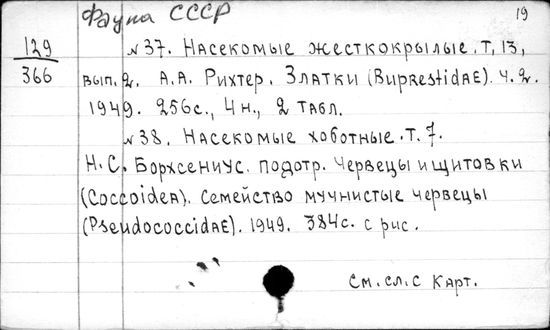 Фауна СССР
19
129
366
№37. Насекомые жесткокрылые. Т. 13,
вып. 2. А.А. Рихтер. Златки (Buprestidae). Ч. 2.
1949. 256с., 4 н., 2 табл.
№38. Насекомые хоботные. Т. 7.
Н.С. Борхсениус. подотр. Червецы и щитовки
(Coccoidea). Семейство мучнистые червецы
(Pseudococcidae). 1949. 384с. с рис.
См. сл. с карт.